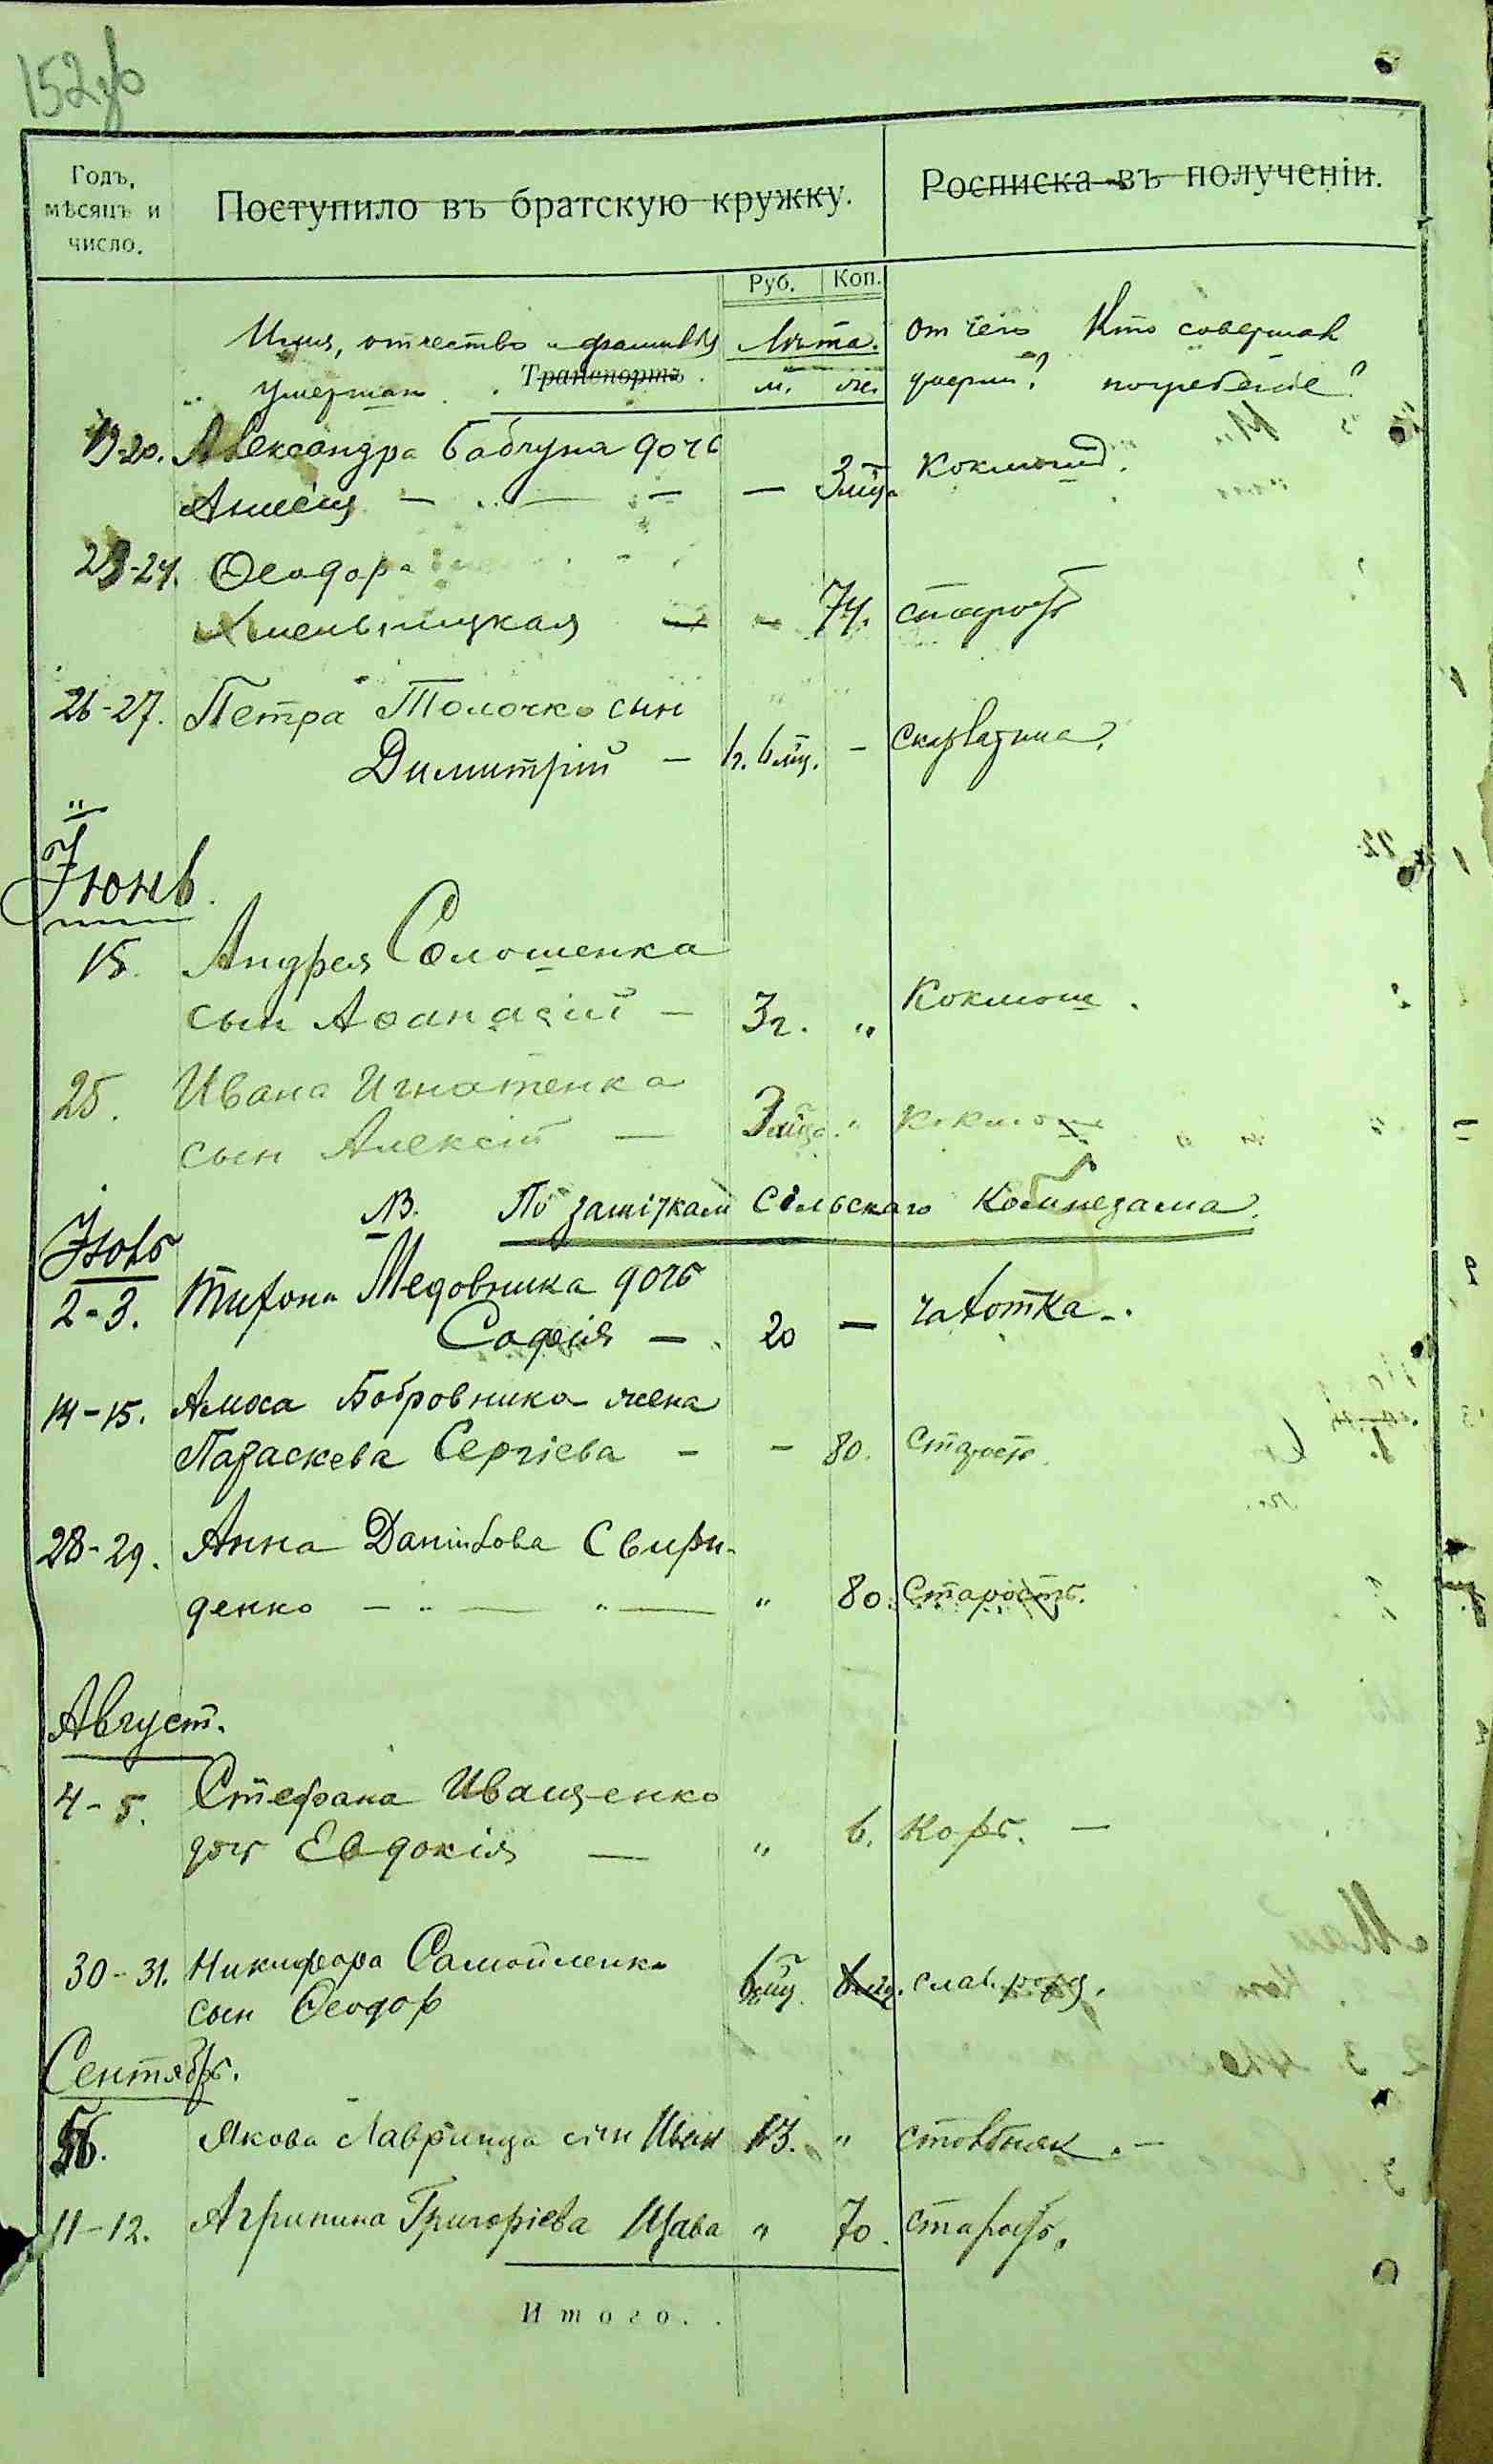 152 об
Годъ, мѣсяцъ и число.
Поступило въ братскую кружку.
Росписка въ полученіи.
Руб. Коп.
Имя, отчество и фамилія Лѣта. от чего Кто совершал
умершаго. Транспортъ. м. ж. умерли? погребеніе?
19-20. Александра Бабчука дочь
— — 3 мца Коклюш.
23-24. Ѳеодора
Хмельницкая — — 74. старость
26-27. Петра Толочко сын
Димитрій — 1 г. 6 мц. — скарлатина.
Іюнь.
15. Андрея Солошенка
сын Аѳанасій — 3 г. „ Коклюш.
25. Ивана Игнатенка
сын Алексій — 3 мца. „ Коклюш
NВ. По заміткам Сільскаго Комнезама.
Іюль
2-3. Тихона Медовника дочь
Софія — 20 — чахотка.
14-15. Амоса Бобровника жена
Параскева Сергіева — — 80. Старость.
28-29. Анна Даніилова Свири-
денко — „ — „ — „ 80. Старость.
Август.
4-5. Стефана Иващенко
дочь Евдокія — „ 6. Корь. —
30-31. Никифора Самойленко
сын Ѳеодор 6 мц. 6 мц. слаб. рожд.
Сентябрь.
56. Якова Лавринца сын Иван 13. „ столбняк. —
11-12. Агрипина Григоріева Щава „ 70. старость.
Итого. .